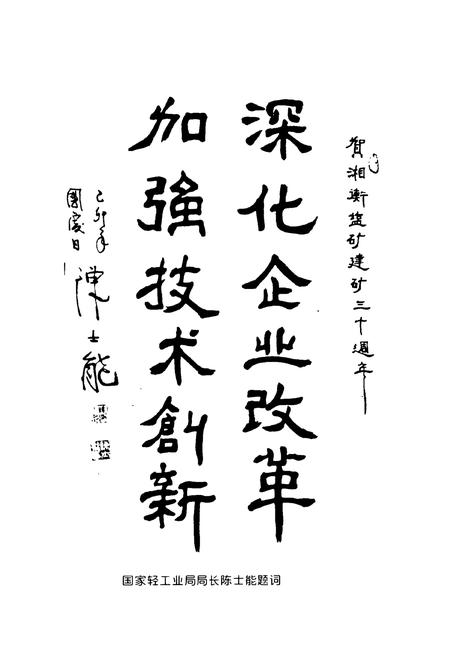 賀湘衡盐矿建矿三十週年
深化企业改革
加強技术創新
己卯年
國慶日
陳士能
国家轻工业局局长陈士能题词